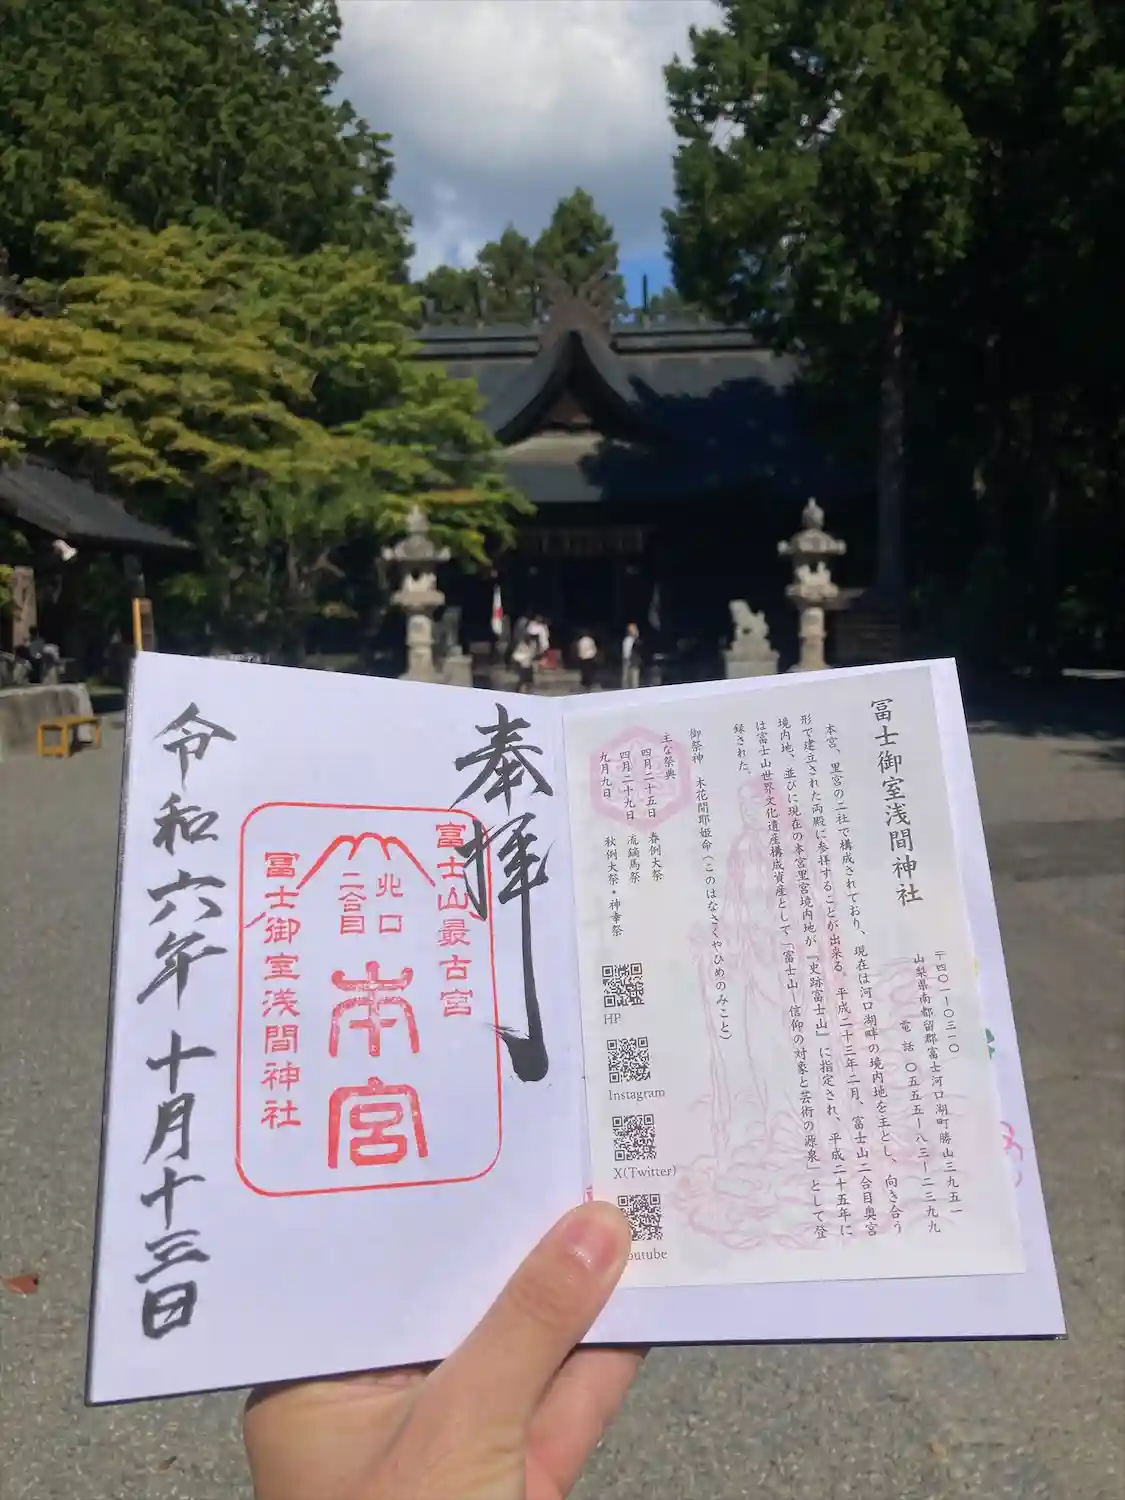 奉拝
富士山最古宮
北口
二合目
本宮
冨士御室浅間神社
令和六年十月十三日
冨士御室浅間神社
〒四〇一ー〇三一〇
山梨県南都留郡富士河口湖町勝山三九五一
電話 〇五五五ー八三ー二三九九
本宮、里宮の二社で構成されており、現在は河口湖畔の境内地を主とし、向き合う
形で建立された両殿に参拝することが出来る。平成二十三年二月、富士山二合目奥宮
境内地、並びに現在の本宮里宮境内地が『史跡富士山』に指定され、平成二十五年に
は富士山世界文化遺産構成資産として「富士山ー信仰の対象と芸術の源泉」として登
録された。
御祭神 木花開耶姫命(このはなさくやひめのみこと)
主な祭典
四月二十五日 春例大祭
四月二十九日 流鏑馬祭
九月九日 秋例大祭・神幸祭
HP
Instagram
X(Twitter)
outube